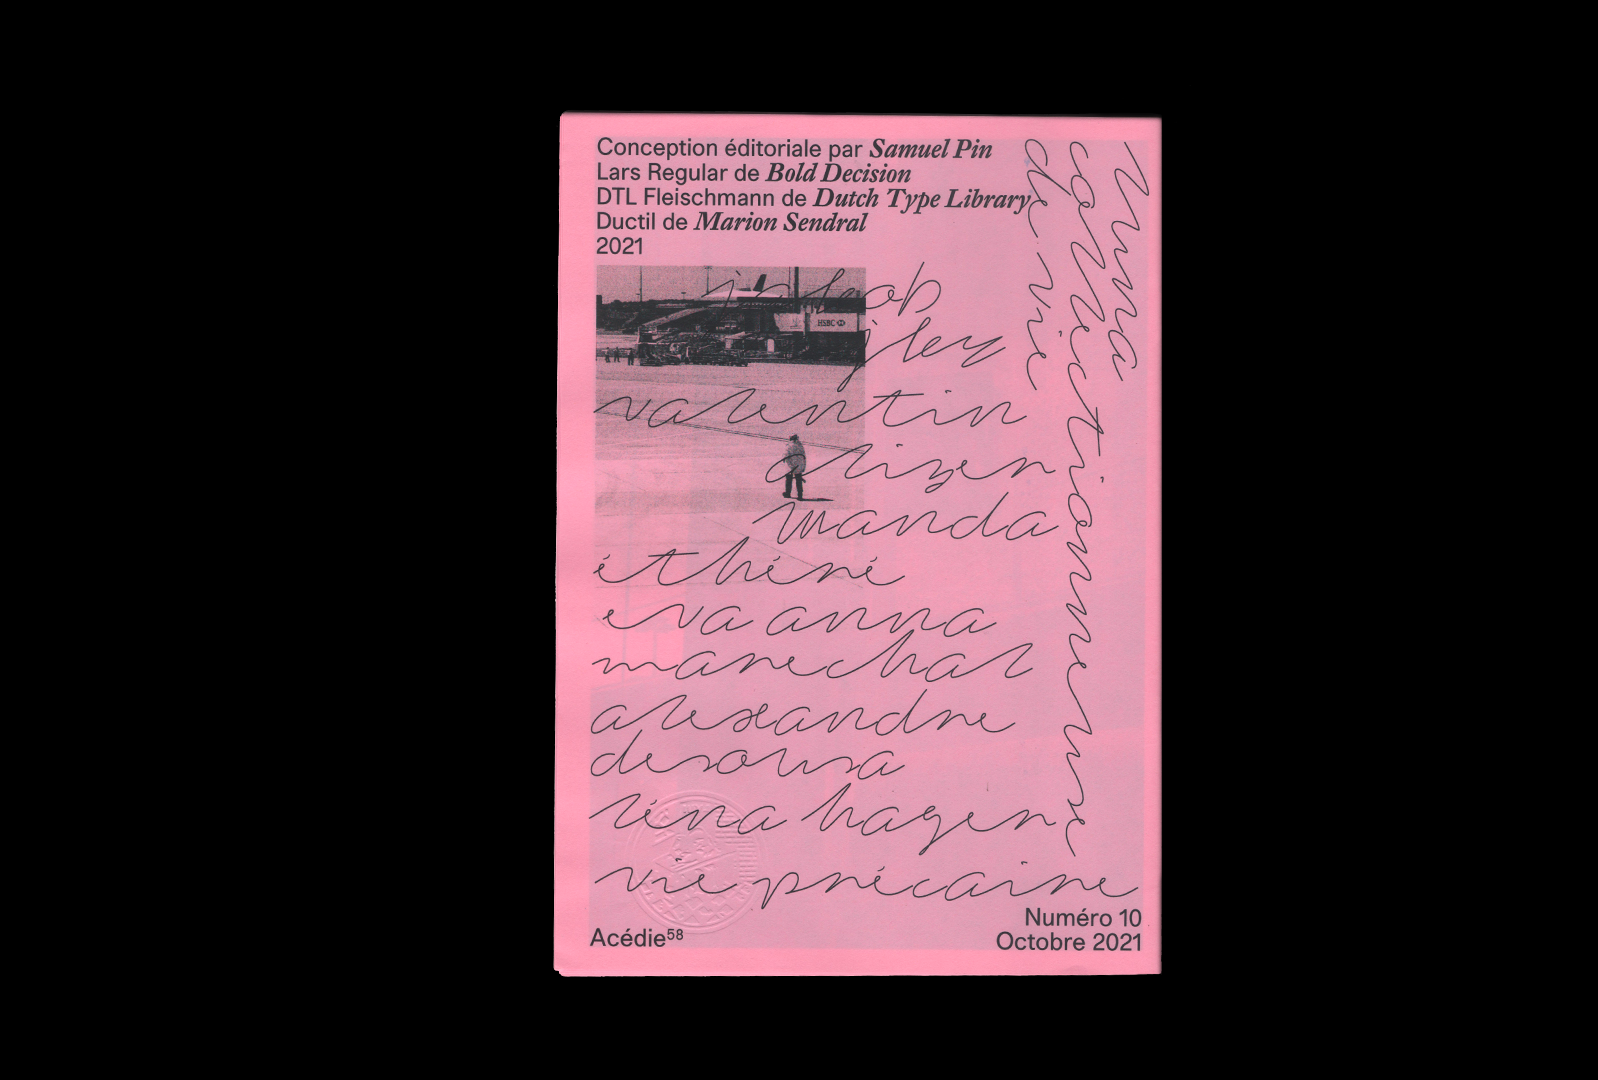 Conception éditoriale par Samuel Pin
Lars Regular de Bold Decision
DTL Fleischmann de Dutch Type Library
Ductil de Marion Sendral
2021
HSBC
jley
valentin
alizer
wanda
éthéré
eva anna
marechal
alexandre
desousa
léna hagen
vie précaire
collectionneuse
de vie
Acédie⁵⁸
Numéro 10
Octobre 2021